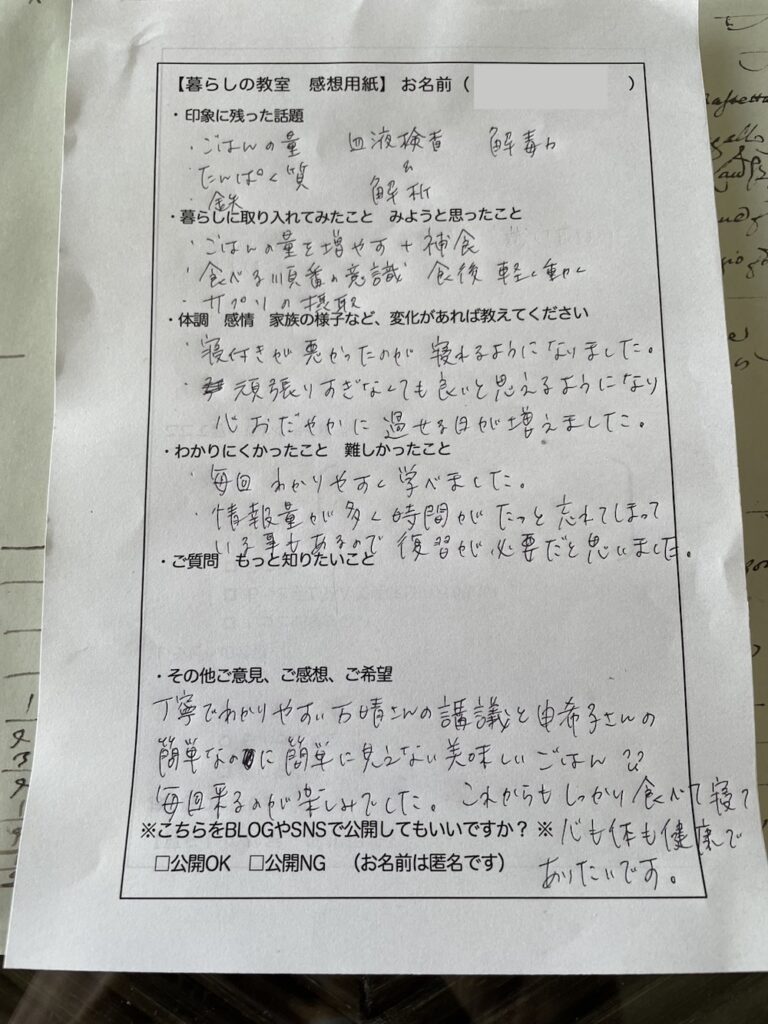 【暮らしの教室 感想用紙】お名前( )
・印象に残った話題
・ごはんの量 血液検査 解毒力
・たんぱく質 & 解析
・鉄
・暮らしに取り入れてみたこと みようと思ったこと
・ごはんの量を増やす + 補食
・食べる順番の意識 食後軽く動く
・サプリの摂取
・体調 感情 家族の様子など、変化があれば教えてください
・寝付きが悪かったのが寝れるようになりました。
・頑張りすぎなくても良いと思えるようになり
心おだやかに過せる日が増えました。
・わかりにくかったこと 難しかったこと
・毎回わかりやすく学べました。
・情報量が多く時間がたつと忘れてしまって
いる事もあるので復習が必要だと思いました。
・ご質問 もっと知りたいこと
・その他ご意見、ご感想、ご希望
丁寧でわかりやすい万晴さんの講議と由希子さんの
簡単なのに簡単に見えない美味しいごはん
毎回来るのが楽しみでした。これからもしっかり食べて寝て
※こちらをBLOGやSNSで公開してもいいですか? ※
心も体も健康で
□公開OK □公開NG (お名前は匿名です)
ありたいです。